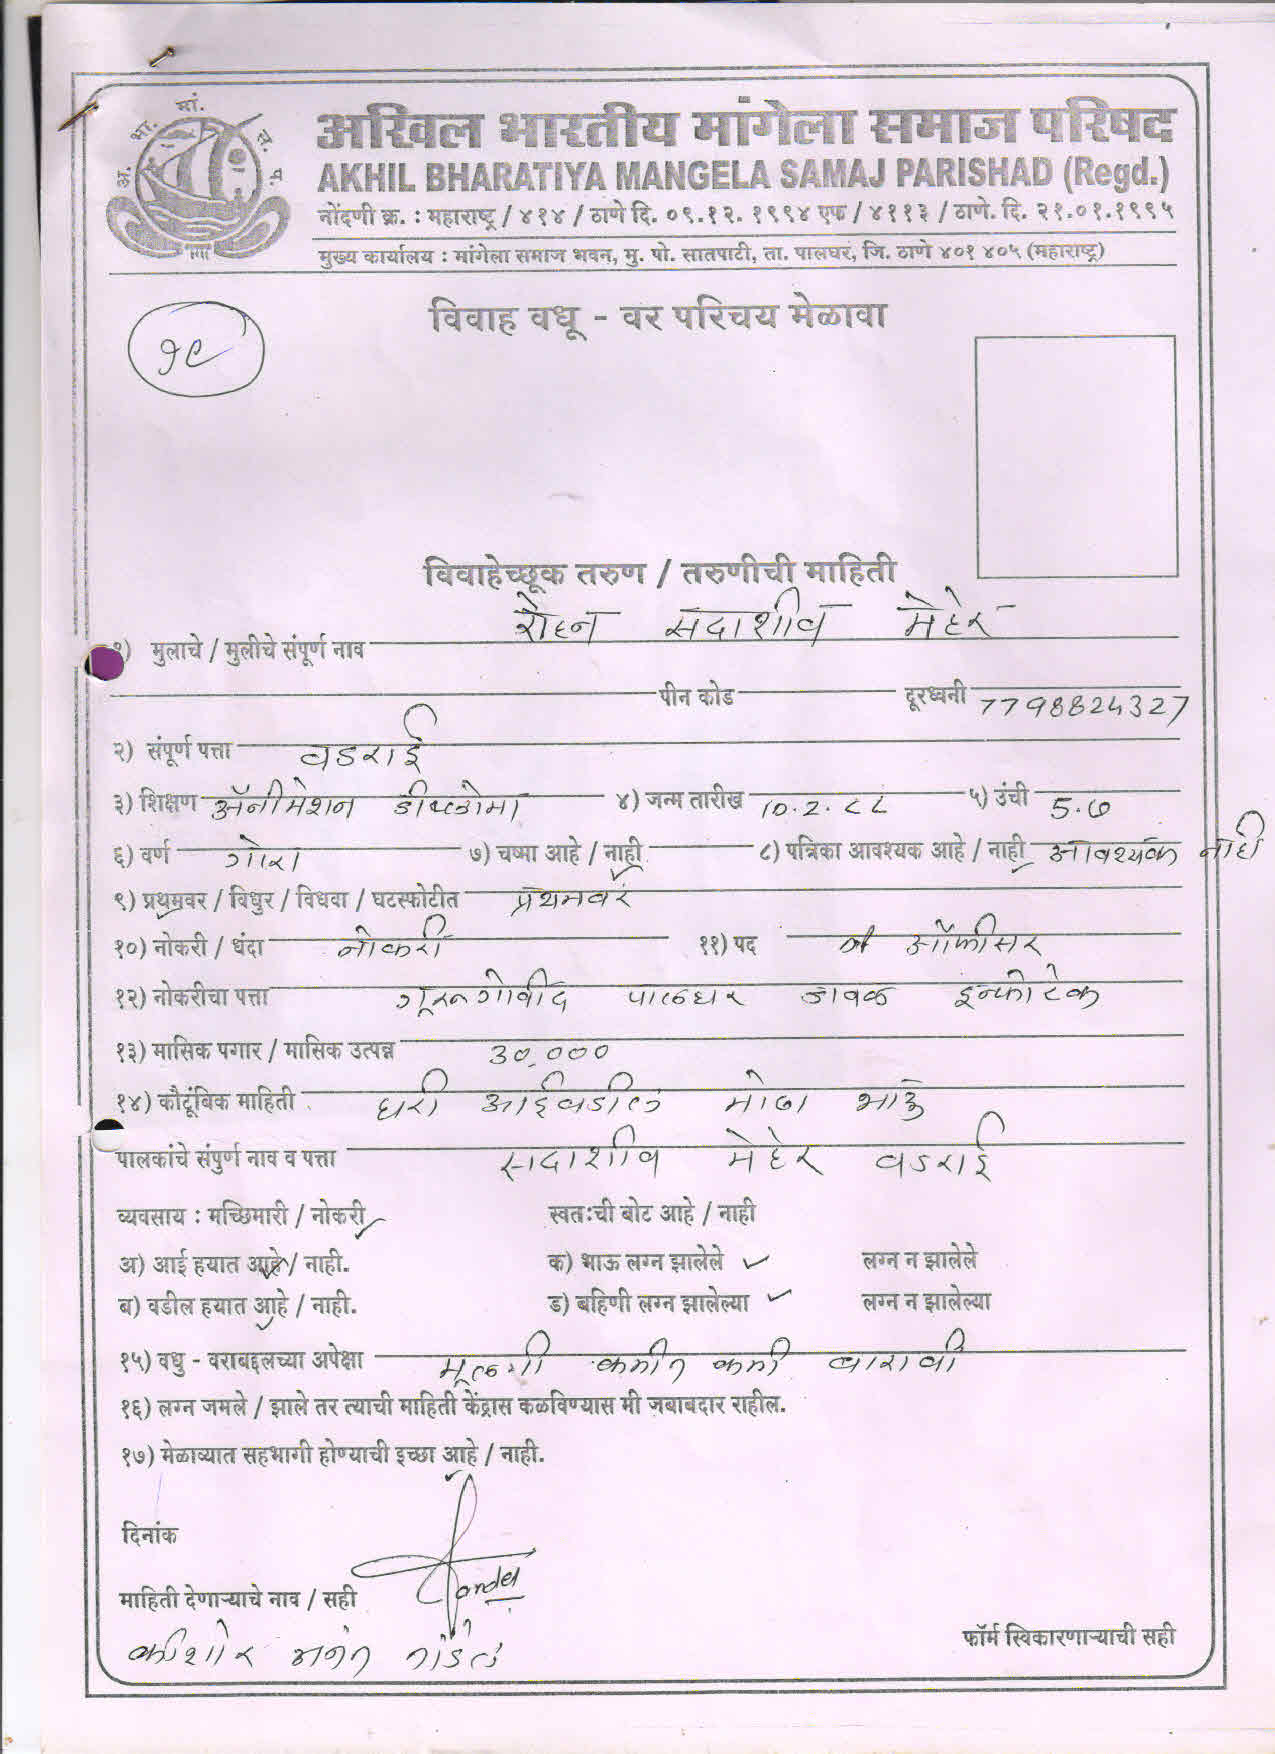 अ. भा. मां. स. प.
अखिल भारतीय मांगेला समाज परिषद
AKHIL BHARATIYA MANGELA SAMAJ PARISHAD (Regd.)
नोंदणी क्र. : महाराष्ट्र / ४१४ / ठाणे दि. ०९.१२. १९९४ एफ / ४११३ / ठाणे. दि. २१.०१.१९९५
मुख्य कार्यालय : मांगेला समाज भवन, मु. पो. सातपाटी, ता. पालघर, जि. ठाणे ४०१ ४०५ (महाराष्ट्र)
विवाह वधू - वर परिचय मेळावा
१९
विवाहेच्छूक तरुण / तरुणीची माहिती
१) मुलाचे / मुलीचे संपूर्ण नाव रोहन सदाशीव मेहेर
पीन कोड दूरध्वनी 7798824327
२) संपूर्ण पत्ता वडराई
३) शिक्षण ॲनीमेशन डीप्लोमा ४) जन्म तारीख 10.2.८८ ५) उंची 5.७
६) वर्ण गोरा ७) चष्मा आहे / नाही ८) पत्रिका आवश्यक आहे / नाही आवश्यक नाही
९) प्रथमवर / विधुर / विधवा / घटस्फोटीत प्रथमवर
१०) नोकरी / धंदा नोकरी ११) पद ऑफीसर
१२) नोकरीचा पत्ता गूरूगोवीद पालघर जवळ इन्फोटेक
१३) मासिक पगार / मासिक उत्पन्न ३०,०००
१४) कौटूंबिक माहिती घरी आईवडील मोठा भाऊ
पालकांचे संपुर्ण नाव व पत्ता सदाशीव मेहेर वडराई
व्यवसाय : मच्छिमारी / नोकरी स्वतःची बोट आहे / नाही
अ) आई हयात आहे / नाही. क) भाऊ लग्न झालेले लग्न न झालेले
ब) वडील हयात आहे / नाही. ड) बहिणी लग्न झालेल्या लग्न न झालेल्या
१५) वधु - वराबद्दलच्या अपेक्षा मूलगी कमीत कमी बारावी
१६) लग्न जमले / झाले तर त्याची माहिती केंद्रास कळविण्यास मी जबाबदार राहील.
१७) मेळाव्यात सहभागी होण्याची इच्छा आहे / नाही.
दिनांक
माहिती देणाऱ्याचे नाव / सही
फॉर्म स्विकारणाऱ्याची सही
कीशोर अनंत तांडेल